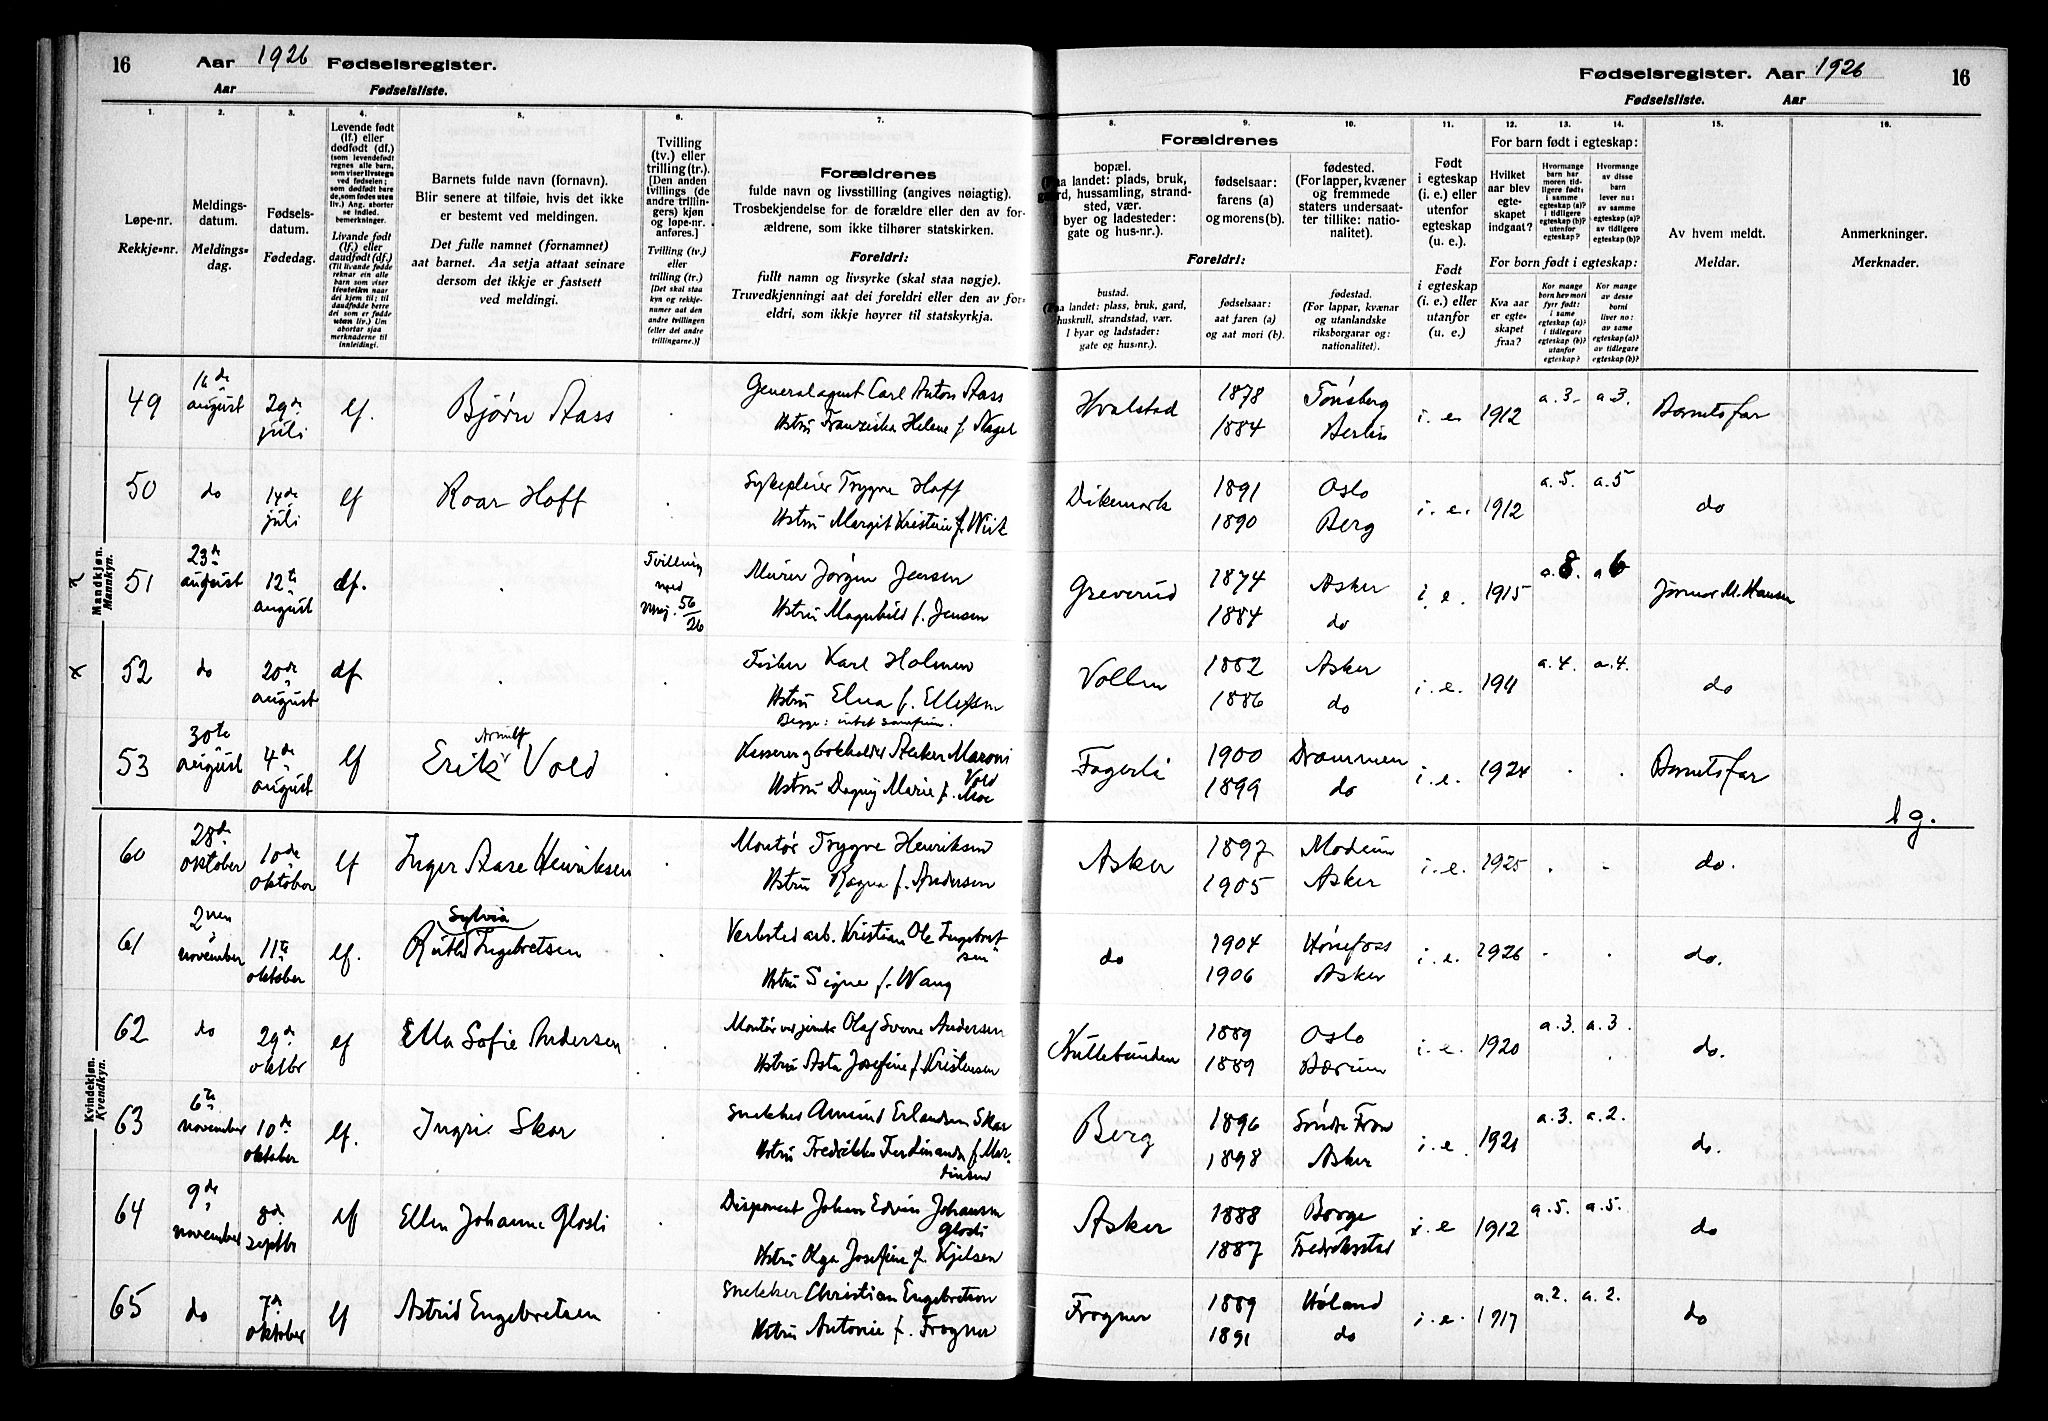 16 Aar 1926 Fødselsregister.
Aar Fødselsliste.
Fødselsregister. Aar 1926 16
Fødselsliste. Aar
1. 2. 3. 4. 5. 6. 7.
Løpe-nr.
Rekkje-nr.
Meldings-
datum.
Meldings-
dag.
Fødsels-
datum.
Fødedag.
Levende født
(lf.) eller
dødfødt (df.)
(som levendefødt
regnes alle barn,
som viser livstegn
ved fødselen;
som dødfødt bare
de, som fødes uten
liv.) Ang. aborter
se indled.
bemerkninger.
Livande født
(lf.) eller
daudfødt (df.)
(Til livande fødde
reknar ein alle
barn som viser
livsteikn naar
dei kjem til; til
daudfødde berre
dei som er fødde
utan liv.) Um
abortar sjaa
merknaderne til
innleidingi.
Barnets fulde navn (fornavn).
Blir senere at tilføie, hvis det ikke
er bestemt ved meldingen.
Det fulle namnet (fornamnet)
aat barnet. Aa setja attaat seinare
dersom det ikkje er fastsett
ved meldingi.
Tvilling
(tv.) eller
trilling (tr.).
[Den anden
tvillings (de
andre trillin-
gers) kjøn
og løpe-nr.
anføres.]
Tvilling (tv.)
eller
trilling (tr.)
[Det skal staa
kyn og rekkje-
numer aat den
andre tvillingen
(eller dei andre
trillingarne.)]
Forældrenes
fulde navn og livsstilling (angives nøiagtig).
Trosbekjendelse for de forældre eller den av for-
ældrene, som ikke tilhører statskirken.
Foreldri:
fullt namn og livsyrke (skal staa nøgje).
Truvedkjenningi aat dei foreldri eller den av for-
eldri, som ikkje høyrer til statskyrkja.
8. 9. 10. 11. 12. 13. 14. 15. 16.
Forældrenes
bopæl.
(Paa landet: plads, bruk,
gaard, hussamling, strand-
sted, vær.
byer og ladesteder:
gate og hus-nr.).
fødselsaar:
farens (a)
og morens (b).
fødested.
(For lapper, kvæner
og fremmede
staters undersaat-
ter tillike: natio-
nalitet).
Foreldri:
bustad.
(Paa landet: plass, bruk, gard,
huskrull, strandstad, vær.
I byar og ladstader:
gate og hus-nr.).
fødselsaar:
aat faren (a)
og aat mori (b).
fødestad.
(For lappar, kvænar
og utanlandske
riksborgarar og:
nationalitet).
Født
i egteskap
(i. e.) eller
utenfor
egteskap
(u. e.).
Født
i egteskap
(i. e.) eller
utanfor
(u. e.).
For barn født i egteskap:
Hvilket
aar blev
egte-
skapet
indgaat?
Hvormange
barn har
moren tid-
ligere født:
i samme
egteskap (a)?
i tidligere
egteskap (b)?
utenfor
egteskap?
Hvormange
av disse
barn
lever nu:
av samme
egteskap (a)?
av tidligere
egteskap (b)?
For born født i egteskap:
Kva aar
er egte-
skapet
fraa?
Kor mange
born hev mori
fyrr født:
i same
egteskap (a)?
i tidlegare
egteskap (b)?
utanfor
egteskap?
Kor mange
av desse
borni
liver no:
av same
egteskap (a)?
av tidlegare
egteskap (b)?
Av hvem meldt.
Meldar.
Anmerkninger.
Merknader.
Mandkjøn.
Mannkyn.
49 16de august 29de juli lf. Bjørn Aass Generalagent Carl Anton Aass Hvalstad 1878 Tønsberg i. e. 1912 a. 3. a 3. Barnets far
Hstru Franziska Helene f. Nagel 1884 Berlin
50 do 14de juli lf Roar Hoff Sykepleier Trygve Hoff Dikemark 1891 Oslo i. e. 1912 a. 5. a. 5 do
Hstru Margit Kristine f. Wiik 1890 Berg
x 51 23de august 12te august df. Tvilling med 56/26 Murer Jørgen Jensen Greverud 1874 Asker i. e. 1915 a. 8. a 6 Jormor M. Hansen
Hstru Magnhild f. Jensen 1884 do
x 52 do 20de august df Fisker Karl Holmen Vollen 1882 Asker i. e. 1911 a. 4. a. 4. do
Hstru Elna f. Ellefsen 1886 do
Begge: intet samfun.
53 30te august 4de august lf Erik Arnulf Vold Kasserer og bokholder Asker Maroni Vold Fagerli 1900 Drammen i. e. 1924 Barnets far
Hstru Dagny Marie f. Moe 1899 do
1 g.
Kvindekjøn.
Kvendkyn.
60 28de oktober 10de oktober lf Inger Aase Henriksen Montør Trygve Henriksen Asker 1897 Modum i. e. 1925 do.
Hstru Ragna f. Andersen 1905 Asker
61 2nen november 11te oktober lf. Ruth Sylvia Ingebretsen Verksted arb. Kristian Ole Ingebret-
sen do 1904 Hønefoss i. e. 1926 do.
Hstru Signe f. Wang 1906 Asker
62 do 29de oktbr lf Ella Sofie Andersen Montør Olaf Sverre Andersen Kullebunden 1889 Oslo i. e. 1920 a. 3. a. 3. do.
Hstru Asta Josefine f. Kristensen 1889 Bærum
63 6te november 10de oktober lf. Ingrid Skar Snekker Amund Erlandsen Skar Berg 1896 Søndre Fron i. e. 1921 a. 3. a. 2. do.
Hstru Fredrikke Ferdinanda f. Mar-
tinsen 1898 Asker
64 9de november 8de septbr lf Ellen Johanne Glosli Disponent Johan Edvin Johansen Glosli Asker 1888 Borge i. e 1912 a. 5. a. 5. do
Hstru Olga Josefine f. Kjelsen 1887 Fredrikstad
65 do 7de oktober lf Astrid Engebretsen Snekker Christian Engebretson Frogner 1889 Høland i. e. 1917 a. 2. a. 2. do
Hstru Antonie f. Frogner 1891 do